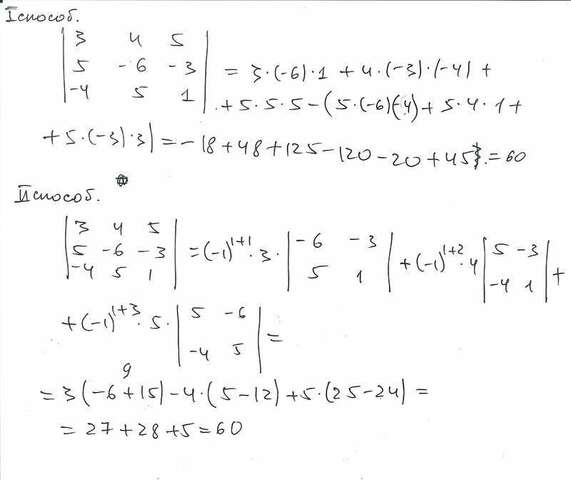 I способ.
| 3 4 5 |
| 5 -6 -3 | = 3·(-6)·1 + 4·(-3)·(-4) +
| -4 5 1 | + 5·5·5 - (5·(-6)(-4) + 5·4·1 +
+ 5·(-3)·3) = -18 + 48 + 125 - 120 - 20 + 45 = 60
II способ.
| 3 4 5 |
| 5 -6 -3 | = (-1)^(1+1)·3·| -6 -3 | + (-1)^(1+2)·4 | 5 -3 | +
| -4 5 1 | | 5 1 | | -4 1 |
+ (-1)^(1+3)·5·| 5 -6 | =
| -4 5 |
9
= 3(-6+15) - 4·(5-12) + 5·(25-24) =
= 27 + 28 + 5 = 60